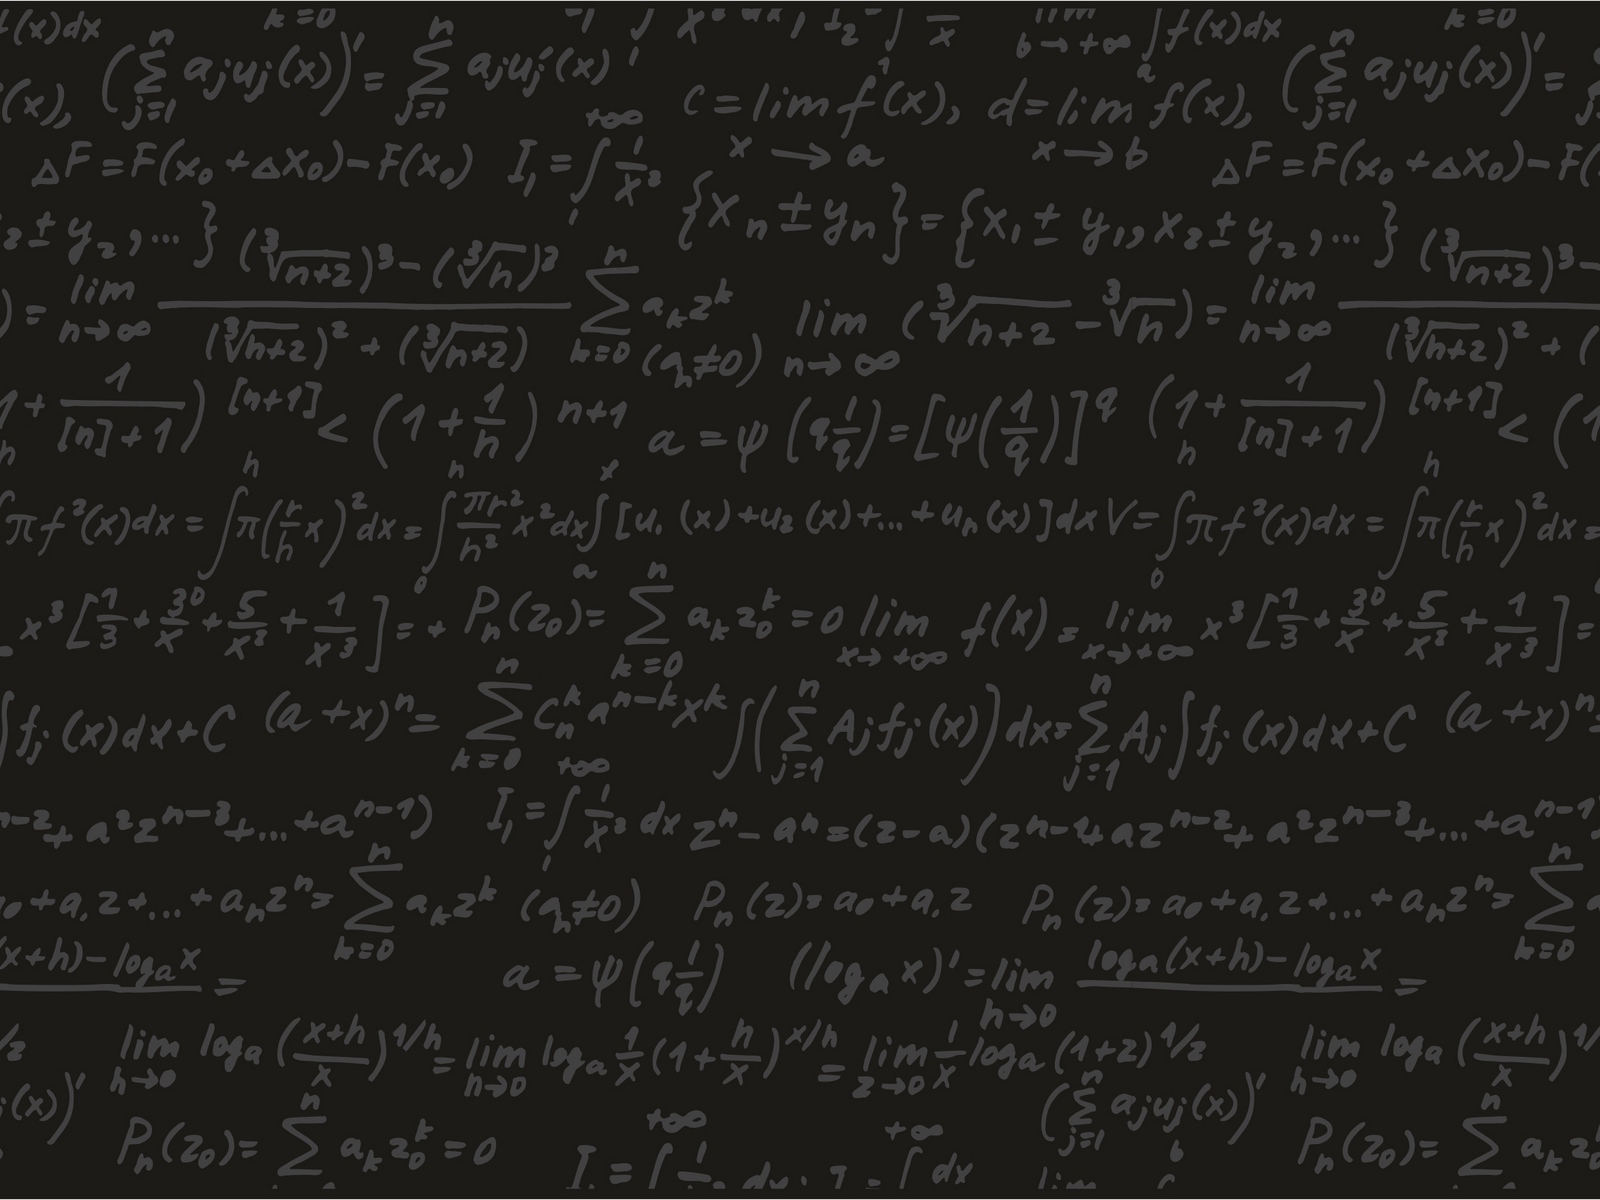 f(x)dx k=0 lim b→+∞ ∫ₐ f(x)dx k=0
(x), (∑ⁿⱼ₌₁ aⱼuⱼ(x))′ = ∑ⁿⱼ₌₁ aⱼuⱼ′(x) c = lim f(x), x→a d = lim f(x), x→b (∑ⁿⱼ₌₁ aⱼuⱼ(x))′ =
△F = F(x₀ + △x₀) − F(x₀) I₁ = ∫₁⁺∞ 1/x² △F = F(x₀ + △x₀) − F(
₂ ± y₂, ... } {xₙ ± yₙ} = {x₁ ± y₁, x₂ ± y₂, ... }
) = lim n→∞ ((∛n+2)³ − (∛n)³)/((∛n+2)² + (∛n+2)) ∑ⁿₖ₌₀ aₖzᵏ (aₙ≠0) lim n→∞ (∛n+2 − ∛n) = lim n→∞ (∛n+2)³ − / (∛n+2)² + (
1 + 1/([n]+1)) [n+1] < (1 + 1/n) n+1 a = ψ(q 1/q) = [ψ(1/q)]^q (1 + 1/([n]+1)) [n+1] < (1
πf²(x)dx = ∫ʰ π(r/h x)² dx = ∫₀ʰ πr²/h² x² dx ∫ₐˣ [u₁(x) + u₂(x) + ... + uₙ(x)]dx V = ∫₀ʰ πf²(x)dx = ∫ʰ π(r/h x)² dx =
x³[1/3 + 30/x + 5/x² + 1/x³] = + Pₙ(z₀) = ∑ⁿₖ₌₀ aₖz₀ᵏ = 0 lim x→+∞ f(x) = lim x→+∞ x³[1/3 + 30/x + 5/x² + 1/x³] =
∫fⱼ(x)dx + C (a + x)ⁿ = ∑ⁿₖ₌₀ Cₙᵏ aⁿ⁻ᵏxᵏ ∫(∑ⁿⱼ₌₁ Aⱼfⱼ(x))dx = ∑ⁿⱼ₌₁ Aⱼ∫fⱼ(x)dx + C (a + x)ⁿ =
ⁿ⁻² + a²zⁿ⁻³ + ... + aⁿ⁻¹) I₁ = ∫₁⁺∞ 1/x² dx zⁿ − aⁿ = (z − a)(zⁿ⁻¹ + azⁿ⁻² + a²zⁿ⁻³ + ... + aⁿ⁻¹
a₀ + a₁z + ... + aₙzⁿ = ∑ⁿₖ₌₀ aₖzᵏ (aₙ≠0) Pₙ(z) = a₀ + a₁z Pₙ(z) = a₀ + a₁z + ... + aₙzⁿ = ∑ⁿₖ₌₀
(x+h) − logₐx = a = ψ(q 1/q) (logₐx)′ = lim h→0 logₐ(x+h) − logₐx =
/z lim h→0 logₐ((x+h)/x)^1/h = lim n→0 logₐ 1/x (1 + h/x)^x/h = lim z→0 1/x logₐ(1+z)^1/z lim h→0 logₐ((x+h)/x)^1/
(x))′ Pₙ(z₀) = ∑ⁿ aₖz₀ᵏ = 0 (∑ⁿⱼ₌₁ aⱼuⱼ(x))′ Pₙ(z₀) = ∑ⁿ aₖz₀